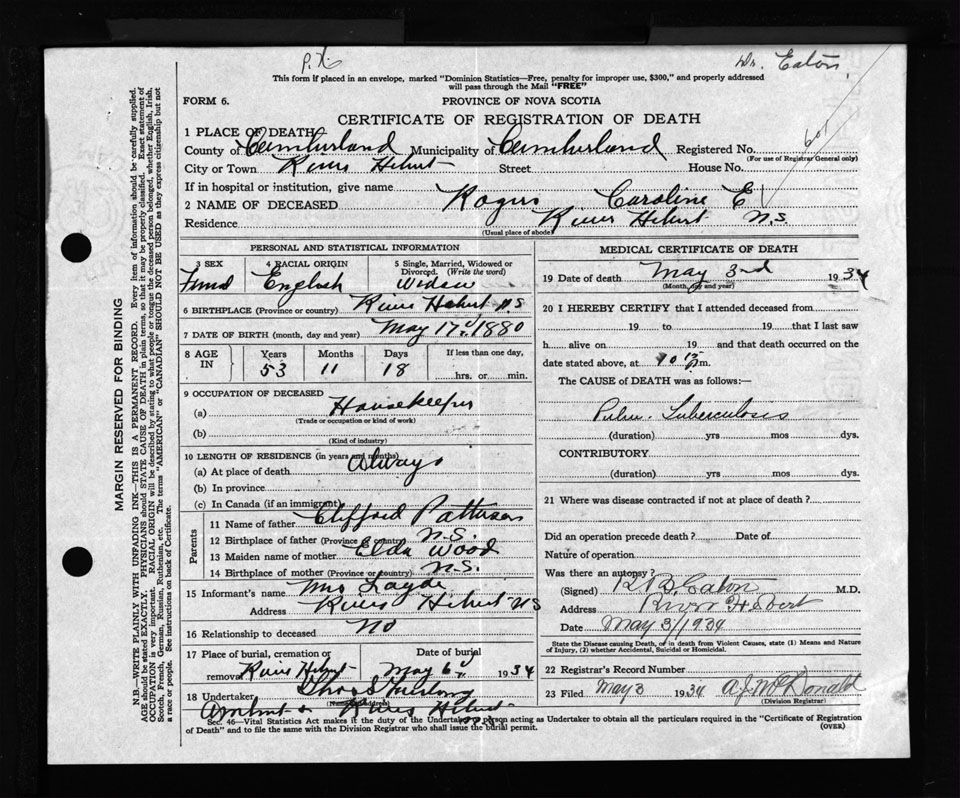 P.X.
Dr. Eaton.
This form if placed in an envelope, marked "Dominion Statistics—Free, penalty for improper use, $300," and properly addressed
will pass through the Mail "FREE"
FORM 6.
PROVINCE OF NOVA SCOTIA
CERTIFICATE OF REGISTRATION OF DEATH
1 PLACE OF DEATH
County of Cumberland Municipality of Cumberland Registered No.
(For use of Registrar General only)
City or Town River Hebert Street House No.
If in hospital or institution, give name
2 NAME OF DECEASED Rogers Caroline E
Residence River Hebert N.S.
(Usual place of abode)
PERSONAL AND STATISTICAL INFORMATION
3 SEX
4 RACIAL ORIGIN
5 Single, Married, Widowed or Divorced. (Write the word)
English
Widow
6 BIRTHPLACE (Province or country) River Hebert N.S.
7 DATE OF BIRTH (month, day and year) May 17, 1880
8 AGE IN
Years
Months
Days
If less than one day,
53
11
18
hrs. or min.
9 OCCUPATION OF DECEASED
(a) Housekeeper
(Trade or occupation or kind of work)
(b)
(Kind of industry)
10 LENGTH OF RESIDENCE (in years and months)
(a) At place of death Always
(b) In province
(c) In Canada (if an immigrant)
Parents
11 Name of father Clifford Patterson
12 Birthplace of father (Province or country) N.S.
13 Maiden name of mother Elda Wood
14 Birthplace of mother (Province or country) N.S.
15 Informant's name Mrs
Address River Hebert NS
16 Relationship to deceased No
17 Place of burial, cremation or removal River Hebert
Date of burial May 6 1934
18 Undertaker
(Name and address)
Amherst & River Hebert
N.S.
MEDICAL CERTIFICATE OF DEATH
19 Date of death May 3rd 1934
(Month, day and year)
20 I HEREBY CERTIFY that I attended deceased from
19 to 19 that I last saw
h alive on 19 and that death occurred on the
date stated above, at m.
The CAUSE of DEATH was as follows:—
Pulm. Tuberculosis
(duration) yrs mos dys.
CONTRIBUTORY
(duration) yrs mos dys.
21 Where was disease contracted if not at place of death?
Did an operation precede death? Date of
Nature of operation
Was there an autopsy?
(Signed) Eaton M.D.
Address River Hebert
Date May 3/1934
State the Disease causing Death, or in death from Violent Causes, state (1) Means and Nature
of Injury, (2) whether Accidental, Suicidal or Homicidal.
22 Registrar's Record Number
23 Filed May 3 1934 A.J. McDonald
(Division Registrar)
Sec. 46—Vital Statistics Act makes it the duty of the Undertaker or person acting as Undertaker to obtain all the particulars required in the "Certificate of Registration
of Death" and to file the same with the Division Registrar who shall issue the burial permit.
(OVER)
MARGIN RESERVED FOR BINDING
N.B.—WRITE PLAINLY WITH UNFADING INK—THIS IS A PERMANENT RECORD. Every item of information should be carefully supplied.
AGE should be stated EXACTLY. PHYSICIANS should STATE CAUSE OF DEATH in plain terms, so that it may be properly classified. Exact statement of
OCCUPATION is very important. RACIAL ORIGIN will be described by stating to what people or tongue the deceased person belonged, whether English, Irish,
Scotch, French, German, Russian, Ruthenian, etc. The terms "AMERICAN" or "CANADIAN" SHOULD NOT BE USED as they express citizenship but not
a race or people. See instructions on back of Certificate.